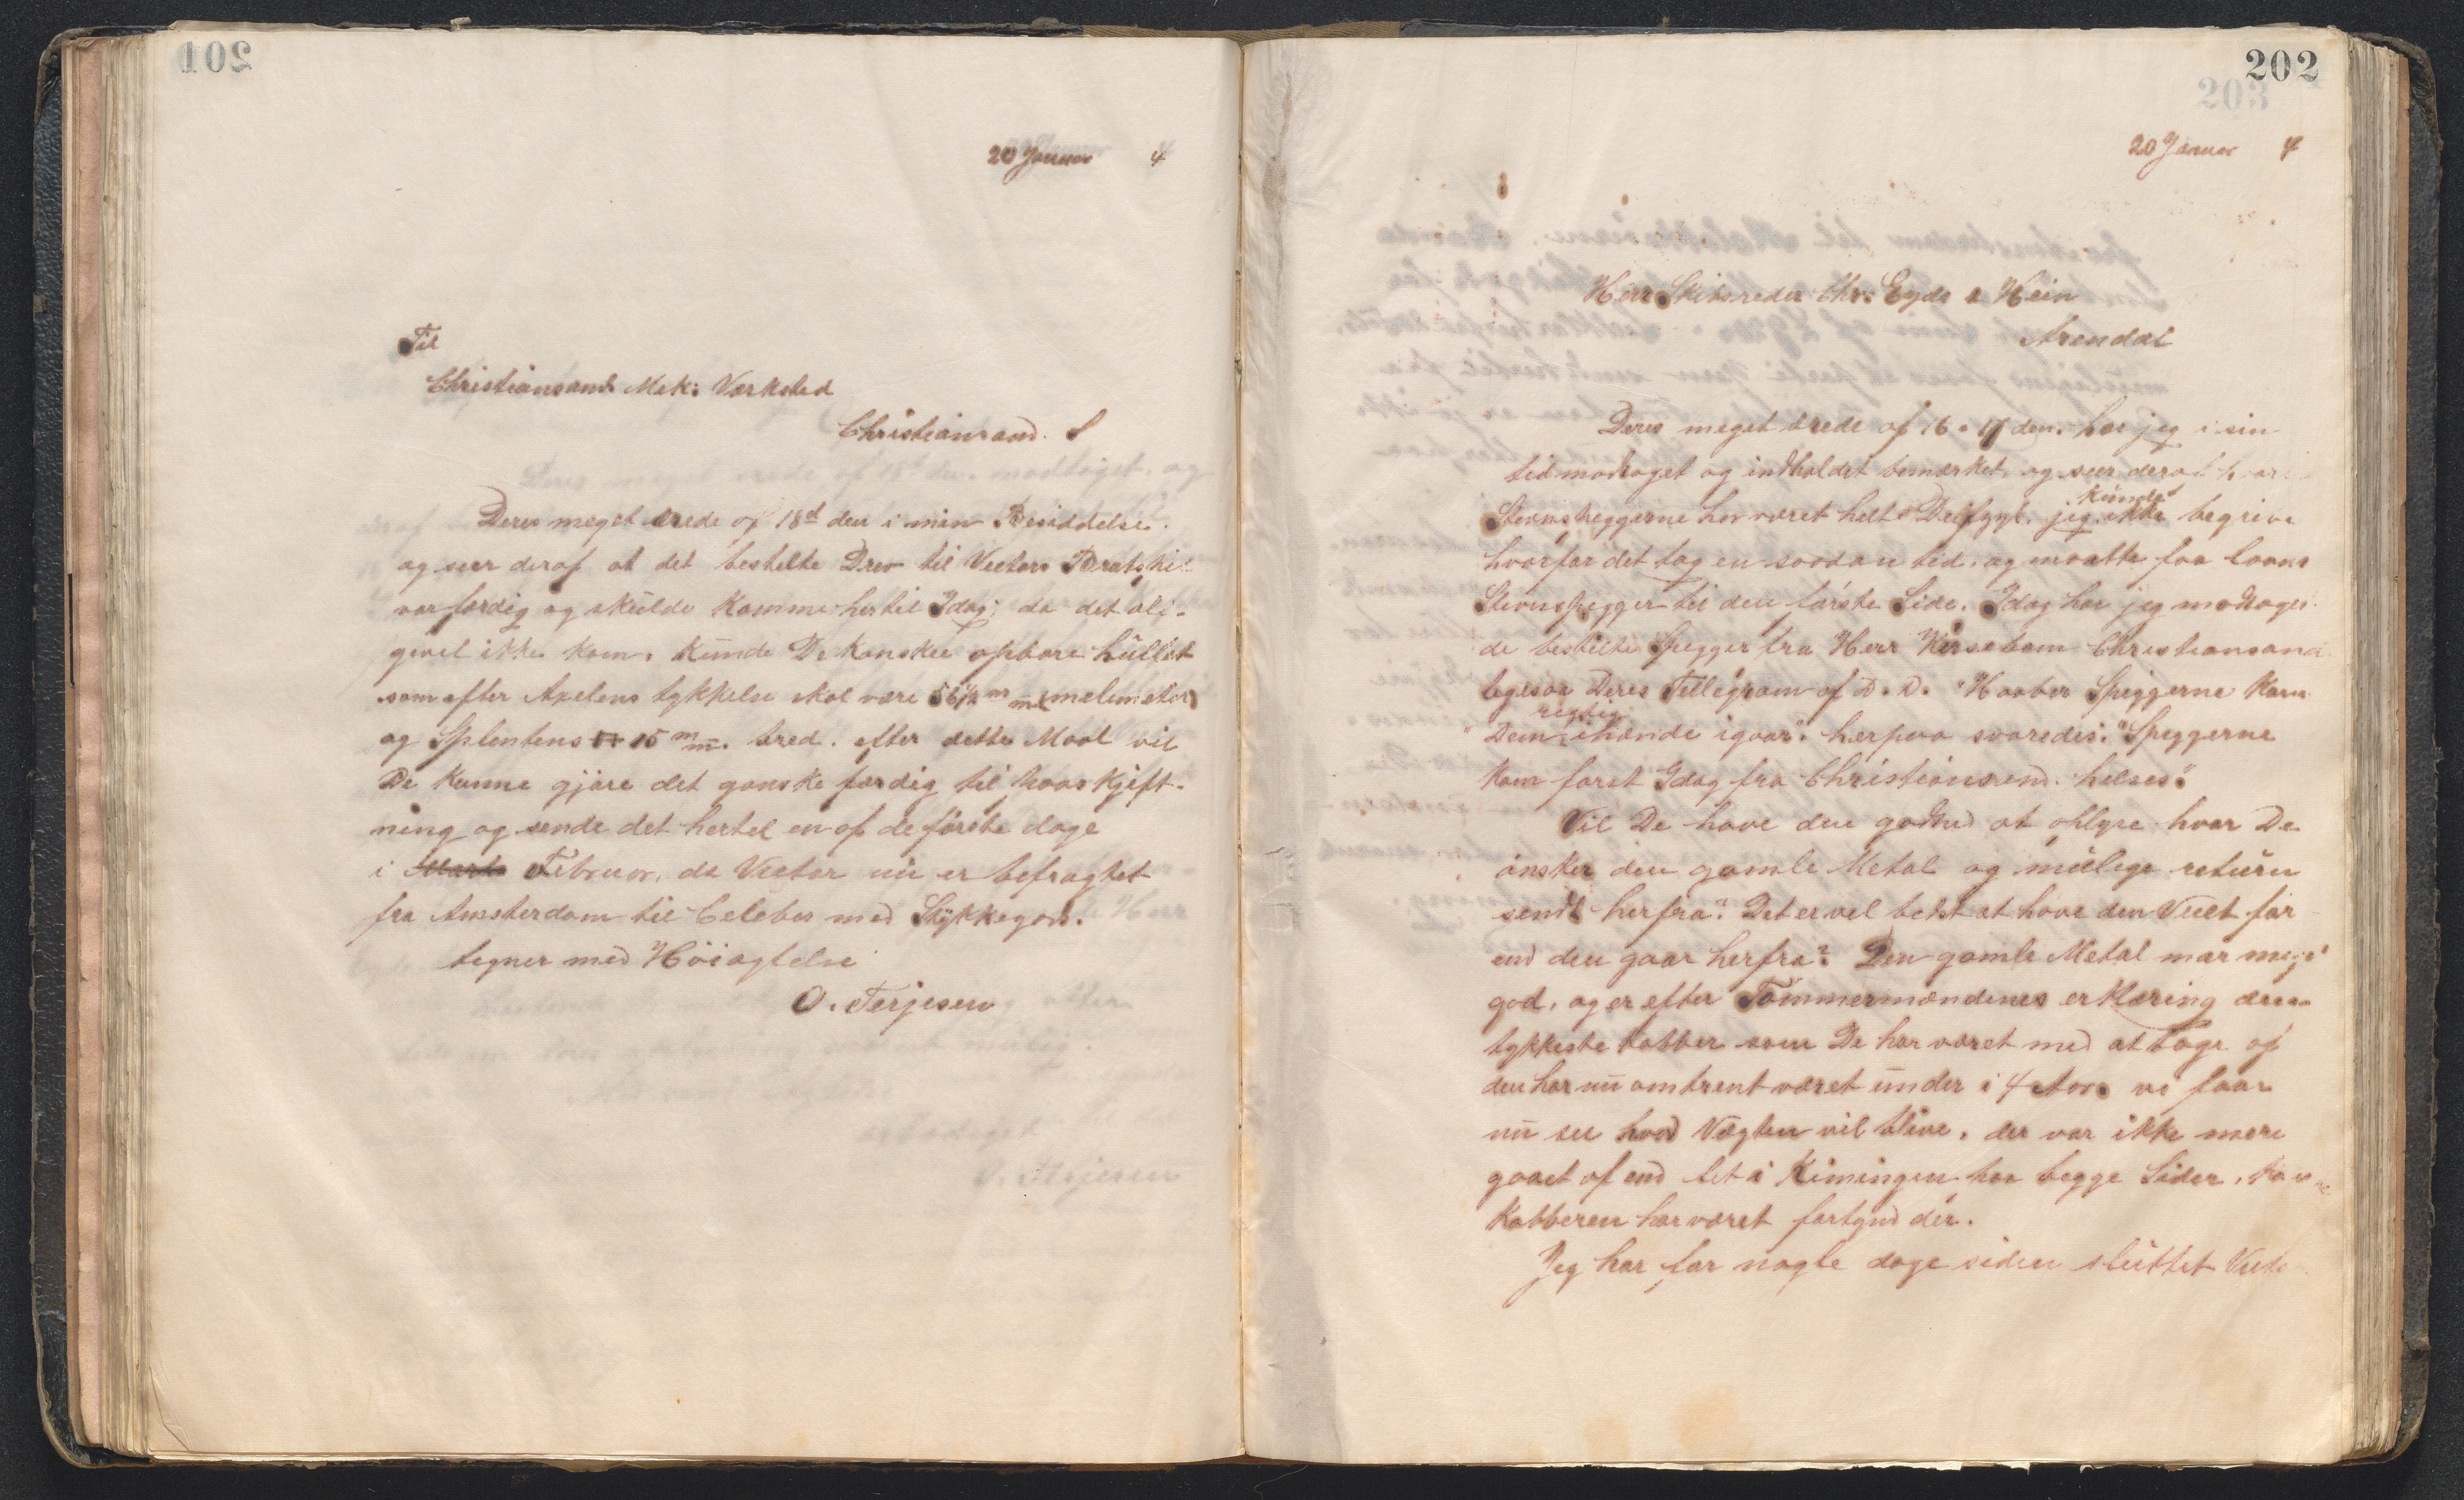 201
20 Januar 4
Til
Christiansands Mek: Værksted
Christiansand. S
Deres meget ærede af 18d den i min Besiddelse.
og seer deraf at det bestelte Drev til Victors Bratspil
var færdig og skulde komme hertil Idag; da det ali-
gevel ikke kom, kunde De kanskee opbore hullet
som efter Axelens tykkelse skal være 56½ m/m (melimeter)
og Splentens 15 m/m. bred. efter dette Maal vil
De kunne gjøre det ganske færdig til paaskjift-
ning og sende det hertil en af de første dage
i Marts Februar, da Victor nu er befragtet
fra Amsterdam til Celebes med Stykkegods.
tegner med Höiagtelse
O. Terjesen
202
203
20 Januar 4
Herr Skibsreder Chr: Eyde & Hein
Arendal
Deres meget ærede af 16 & 17 den. har jeg i sin
tid modtaget og indholdet bemærket, og seer deraf hvor
Stevnspeggerne har været helt Delfzyl. jeg kunde ikke begrive
hvorfor det tog en saadan tid, og maatte faa laane
Stevnspegger til den første Side. Idag har jeg modtaget
de bestilte Spegger fra Herr Kirsebom Christiansand
ligesaa Deres Tellegram af D. D. "Haaber Spiggerne kom
"Dem rigtig ihænde igaar". herpaa svaredes: "Speggerne
kom først Idag fra Christiansand. hilses"
Vil De have den godhed at oplyse hvor De
ønsker den gamle Metal og mulige return
sendt herfra? Det er vel bedst at have den Veiet før
end den gaar herfra? Den gamle Metal var meget
god, og er efter Tømmermændenes erklæring den
tykkeste kobber som De har været med at tage af
den har nu omtrent været under i 4 Aar. vi faar
nu see hvad Vægten vil blive, der var ikke mere
gaaet af end lit i Kimingen paa begge Sider,
Kobberen har været fortynd der.
Jeg har for nogle dage siden sluttet Victor